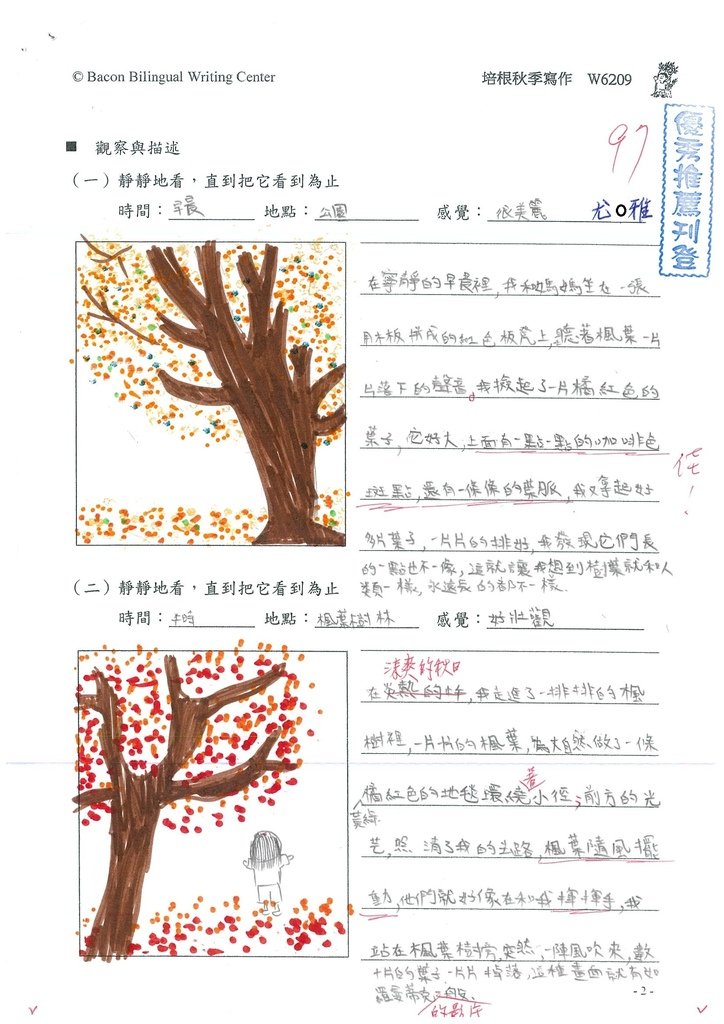 © Bacon Bilingual Writing Center
培根秋季寫作 W6209
97
優秀推薦刊登
■ 觀察與描述
(一)靜靜地看，直到把它看到為止
時間：早晨 地點：公園 感覺：很美麗 尤○雅
在寧靜的早晨裡，我和媽媽坐在一張
用木板拼成的紅色板凳上，聽著楓葉一片
片落下的聲音。我撿起了一片橘紅色的
葉子，它好大，上面有一點一點的咖啡色
斑點，還有一條條的葉脈，我又拿起好
佳！
多片葉子，一片片的排好，我發現它們長
的一點也不一像，這就讓我想到樹葉就和人
類一樣，永遠長的都不一樣.
(二)靜靜地看，直到把它看到為止
時間：中午時 地點：楓葉樹林 感覺：好壯觀
涼爽的秋日
在炎熱的中午，我走進了一排排的楓
樹裡，一片片的楓葉，為大自然做了一條
橘紅色的地毯環繞著小徑；前方的光
芒，照清了我的出路，楓葉隨風擺
動，他們就好像在和我揮揮手，我
站在楓葉樹旁，突然，一陣風吹來，數
十片的葉子一片片掉落，這種畫面就有如
羅曼蒂克
的影片
- 2 -